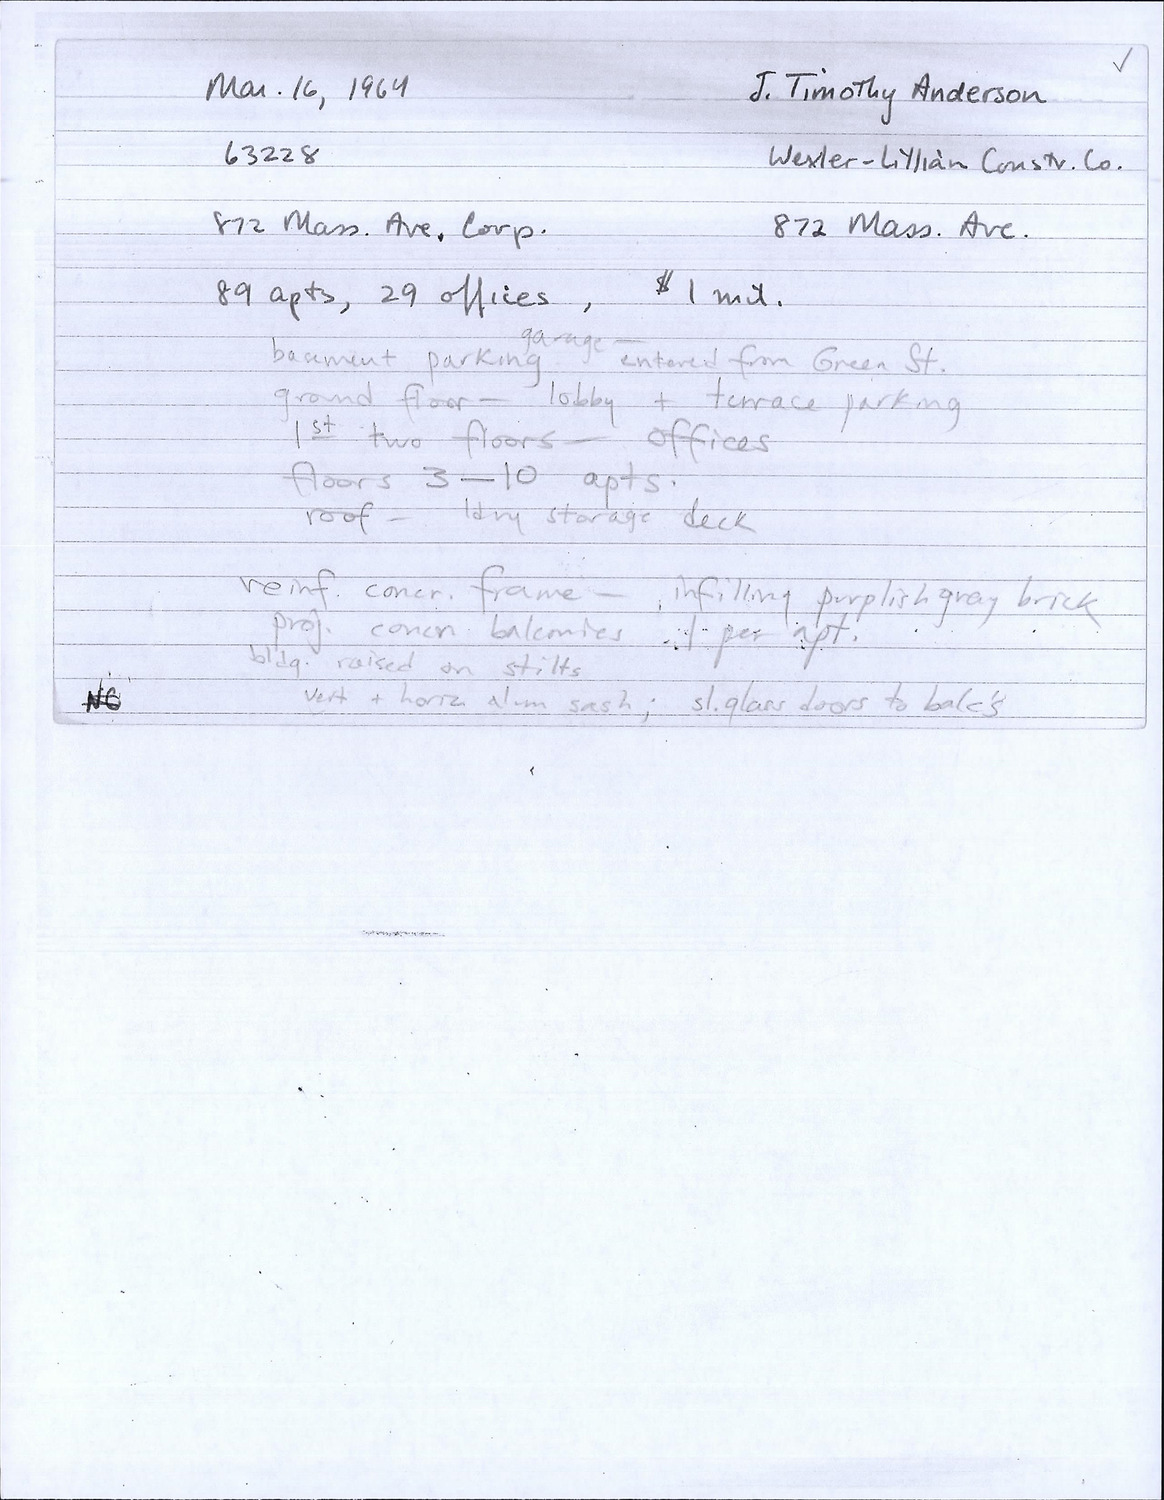 ✓
Mar. 16, 1964 J. Timothy Anderson
63228 Wexler-Lillian Constr. Co.
872 Mass. Ave. Corp. 872 Mass. Ave.
89 apts, 29 offices, $1 mil.
garage —
basement parking entered from Green St.
ground floor — lobby + terrace parking
1st two floors — offices
floors 3—10 apts.
roof — ldry storage deck
reinf. concr. frame — infilling purplish gray brick
proj. concr. balconies 1 per apt.
bldg. raised on stilts
NC vert + horiz alum sash; sl. glass doors to balc's